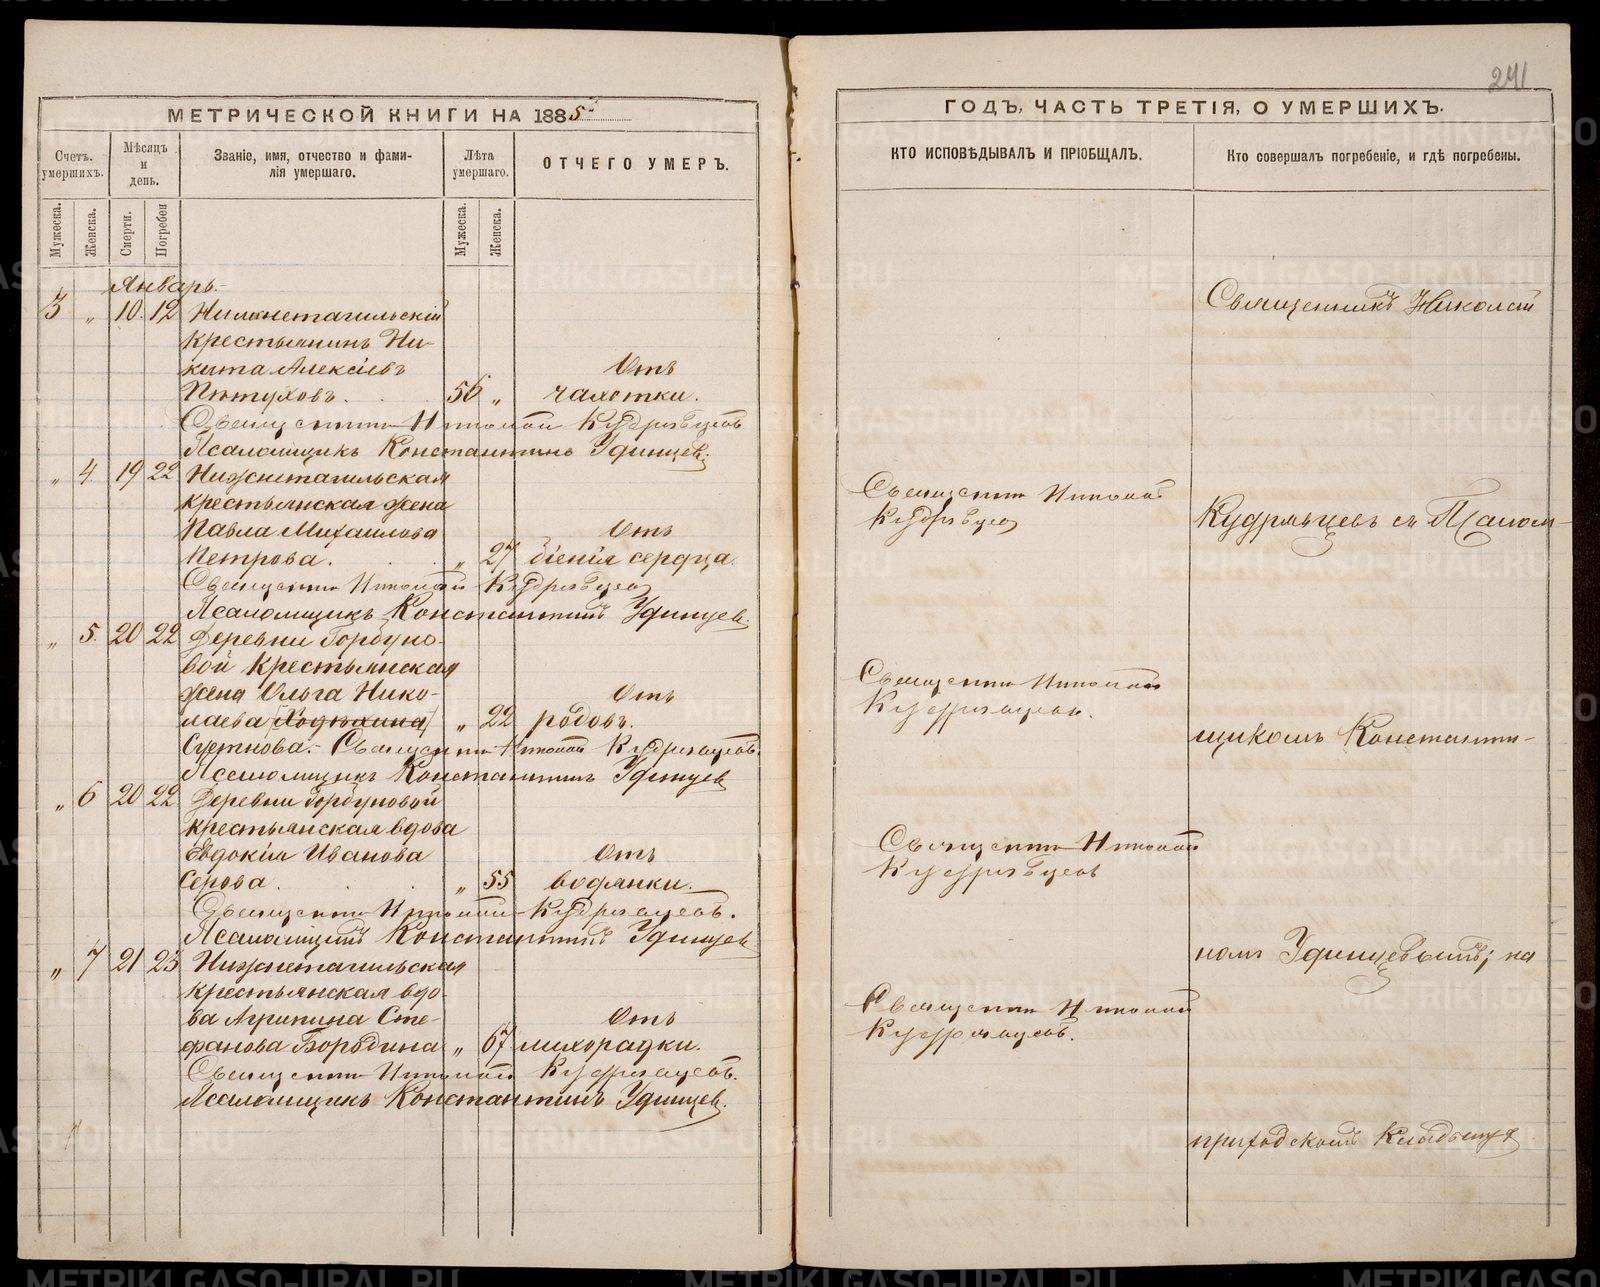 241
МЕТРИЧЕСКОЙ КНИГИ НА 1885
Счетъ умершихъ.
Мѣсяцъ и день.
Званіе, имя, отчество и фами-
лія умершаго.
Лѣта умершаго.
ОТЧЕГО УМЕРЪ.
Мужеска.
Женска.
Смерти.
Погребен
Мужеска.
Женска.
Январь.
3 " 10. 12 Нижнетагильскій
крестьянинъ Ни-
кита Алексѣевъ Отъ
Пѣтуховъ. 56 " чахотки.
Священникъ Николай Кудрявцевъ
Псаломщикъ Константинъ Удинцевъ.
" 4. 19 22 Нижнетагильская
крестьянская жена
Павла Михаилова Отъ
Петрова. " 27 біенія сердца.
Священникъ Николай Кудрявцевъ
Псаломщикъ Константинъ Удинцев.
" 5. 20 22 Деревни Горбуно-
вой крестьянская
жена Ольга Нико- Отъ
лаева " 22 родовъ.
Суетнова. Священникъ Николай Кудрявцевъ.
Псаломщикъ Константинъ Удинцев
" 6 20 22 Деревни Горбуновой
крестьянская вдова
Евдокія Иванова Отъ
Серова. " 55 водянки.
Священникъ Николай Кудрявцевъ.
Псаломщикъ Константинъ Удинцев
" 7 21 23 Нижнетагильская
крестьянская вдо-
ва Агрипина Сте- Отъ
фанова Бородина " 67 лихорадки.
Священникъ Николай Кудрявцевъ.
Псаломщикъ Константинъ Удинцев.
ГОДЪ, ЧАСТЬ ТРЕТІЯ, О УМЕРШИХЪ.
КТО ИСПОВѢДЫВАЛЪ И ПРІОБЩАЛЪ.
Кто совершалъ погребеніе, и гдѣ погребены.
Священникъ Николай
Священникъ Николай
Кудрявцев
Кудрявцевъ съ Псалом-
Священникъ Николай
Кудрявцевъ.
щикомъ Константи-
Священникъ Николай
Кудрявцевъ
номъ Удинцевымъ; на
Священникъ Николай
Кудрявцевъ.
приходскомъ кладбищѣ
METRIKI.GASO-URAL.RU